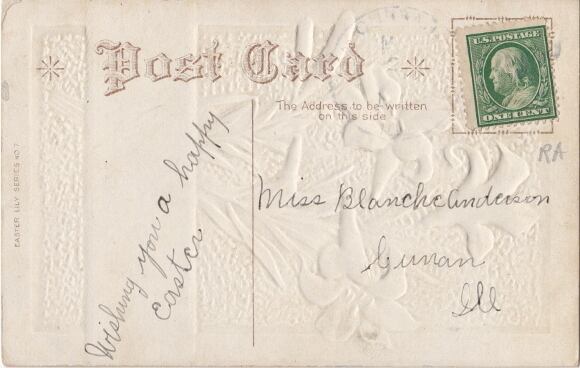 Post Card
The Address to be written
on this side
U.S. POSTAGE
ONE CENT
RA
EASTER LILY SERIES NO 7
Wishing you a happy
Easter
Miss Blanche Anderson
Curran
Ill